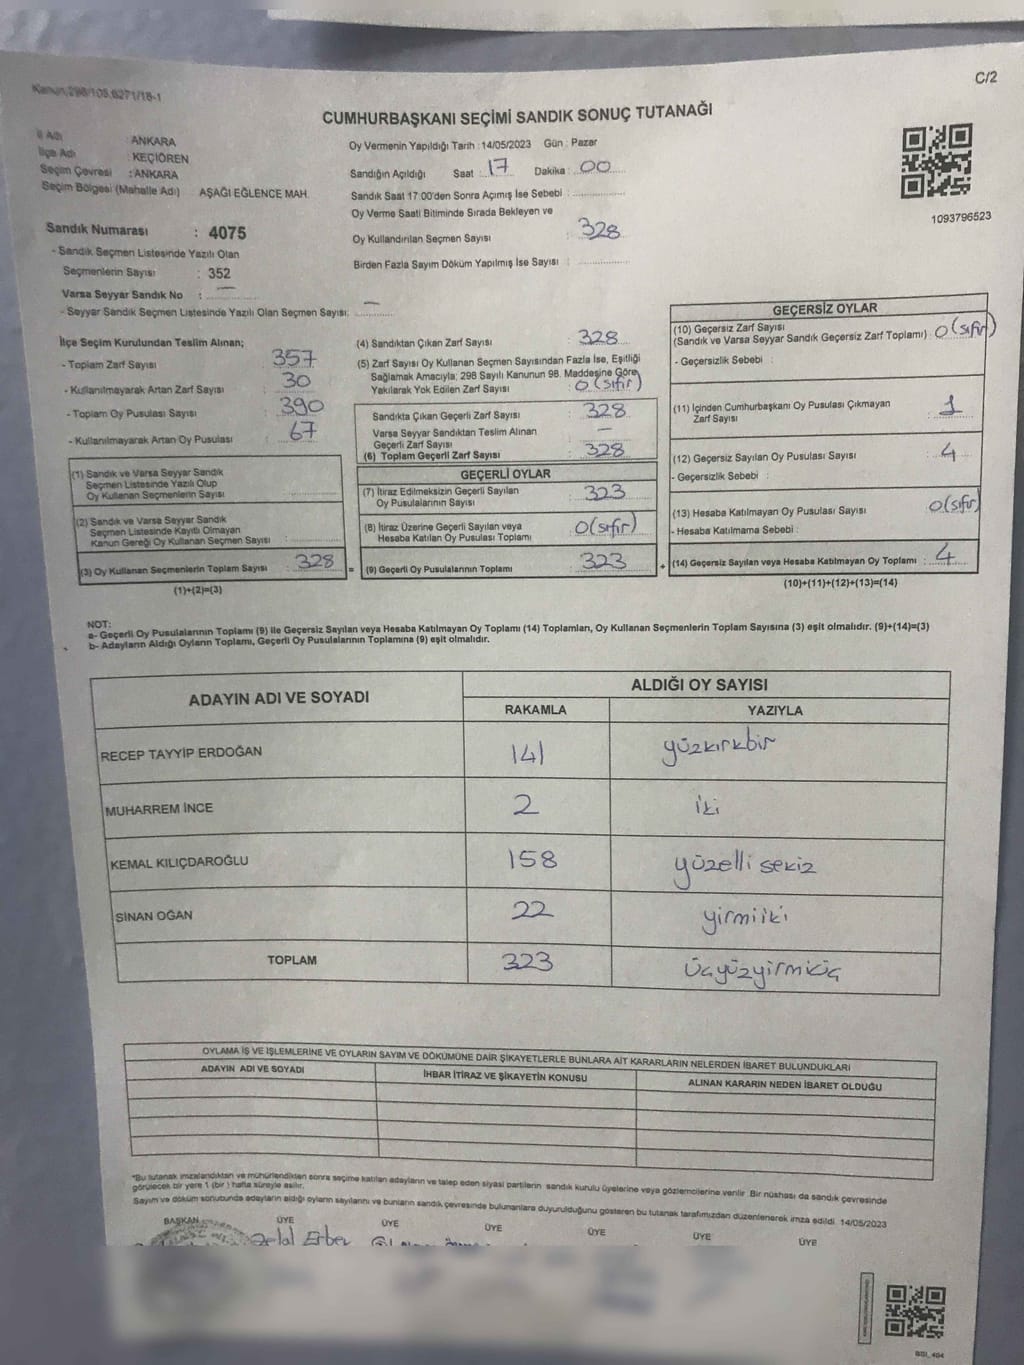 Kanun;298/105,6271/18-1
C/2
CUMHURBAŞKANI SEÇİMİ SANDIK SONUÇ TUTANAĞI
İl Adı : ANKARA
İlçe Adı : KEÇİÖREN
Seçim Çevresi : ANKARA
Seçim Bölgesi (Mahalle Adı) : AŞAĞI EĞLENCE MAH.
Sandık Numarası : 4075
- Sandık Seçmen Listesinde Yazılı Olan
Seçmenlerin Sayısı : 352
Varsa Seyyar Sandık No : —
- Seyyar Sandık Seçmen Listesinde Yazılı Olan Seçmen Sayısı: —
Oy Vermenin Yapıldığı Tarih : 14/05/2023 Gün : Pazar
Sandığın Açıldığı Saat : 17 Dakika : 00
Sandık Saat 17:00'den Sonra Açımış İse Sebebi :
Oy Verme Saati Bitiminde Sırada Bekleyen ve
Oy Kullandırılan Seçmen Sayısı : 328
Birden Fazla Sayım Döküm Yapılmış İse Sayısı :
1093796523
İlçe Seçim Kurulundan Teslim Alınan;
- Toplam Zarf Sayısı : 357
- Kullanılmayarak Artan Zarf Sayısı : 30
- Toplam Oy Pusulası Sayısı : 390
- Kullanılmayarak Artan Oy Pusulası : 67
(1) Sandık ve Varsa Seyyar Sandık
Seçmen Listesinde Yazılı Olup
Oy Kullanan Seçmenlerin Sayısı :
(2) Sandık ve Varsa Seyyar Sandık
Seçmen Listesinde Kayıtlı Olmayan
Kanun Gereği Oy Kullanan Seçmen Sayısı :
(3) Oy Kullanan Seçmenlerin Toplam Sayısı : 328
(1)+(2)=(3)
=
(4) Sandıktan Çıkan Zarf Sayısı : 328
(5) Zarf Sayısı Oy Kullanan Seçmen Sayısından Fazla İse, Eşitliği
Sağlamak Amacıyla; 298 Sayılı Kanunun 98. Maddesine Göre
Yakılarak Yok Edilen Zarf Sayısı : 0 (sıfır)
Sandıkta Çıkan Geçerli Zarf Sayısı : 328
Varsa Seyyar Sandıktan Teslim Alınan
Geçerli Zarf Sayısı : —
(6) Toplam Geçerli Zarf Sayısı : 328
GEÇERLİ OYLAR
(7) İtiraz Edilmeksizin Geçerli Sayılan
Oy Pusulalarının Sayısı : 323
(8) İtiraz Üzerine Geçerli Sayılan veya
Hesaba Katılan Oy Pusulası Toplamı : 0(sıfır)
(9) Geçerli Oy Pusulalarının Toplamı : 323
+
GEÇERSİZ OYLAR
(10) Geçersiz Zarf Sayısı
(Sandık ve Varsa Seyyar Sandık Geçersiz Zarf Toplamı) : 0(sıfır)
- Geçersizlik Sebebi :
(11) İçinden Cumhurbaşkanı Oy Pusulası Çıkmayan
Zarf Sayısı : 1
(12) Geçersiz Sayılan Oy Pusulası Sayısı : 4
- Geçersizlik Sebebi :
(13) Hesaba Katılmayan Oy Pusulası Sayısı : 0(sıfır)
- Hesaba Katılmama Sebebi :
(14) Geçersiz Sayılan veya Hesaba Katılmayan Oy Toplamı : 4
(10)+(11)+(12)+(13)=(14)
NOT:
a- Geçerli Oy Pusulalarının Toplamı (9) ile Geçersiz Sayılan veya Hesaba Katılmayan Oy Toplamı (14) Toplamları, Oy Kullanan Seçmenlerin Toplam Sayısına (3) eşit olmalıdır. (9)+(14)=(3)
b- Adayların Aldığı Oyların Toplamı, Geçerli Oy Pusulalarının Toplamına (9) eşit olmalıdır.
ADAYIN ADI VE SOYADI ALDIĞI OY SAYISI
RAKAMLA YAZIYLA
RECEP TAYYİP ERDOĞAN 141 yüzkırkbir
MUHARREM İNCE 2 iki
KEMAL KILIÇDAROĞLU 158 yüzelli sekiz
SİNAN OĞAN 22 yirmiiki
TOPLAM 323 üçyüzyirmiüç
OYLAMA İŞ VE İŞLEMLERİNE VE OYLARIN SAYIM VE DÖKÜMÜNE DAİR ŞİKAYETLERLE BUNLARA AİT KARARLARIN NELERDEN İBARET BULUNDUKLARI
ADAYIN ADI VE SOYADI İHBAR İTİRAZ VE ŞİKAYETİN KONUSU ALINAN KARARIN NEDEN İBARET OLDUĞU
*Bu tutanak imzalandıktan ve mühürlendikten sonra seçime katılan adayların ve talep eden siyasi partilerin sandık kurulu üyelerine veya gözlemcilerine verilir. Bir nüshası da sandık çevresinde
görülecek bir yere 1 (bir) hafta süreyle asılır.
Sayım ve döküm sonubunda adayların aldığı oyların sayılarını ve bunların sandık çevresinde bulunanlara duyurulduğunu gösteren bu tutanak tarafımızdan düzenlenerek imza edildi. 14/05/2023
BAŞKAN ÜYE ÜYE ÜYE ÜYE ÜYE ÜYE
Erber